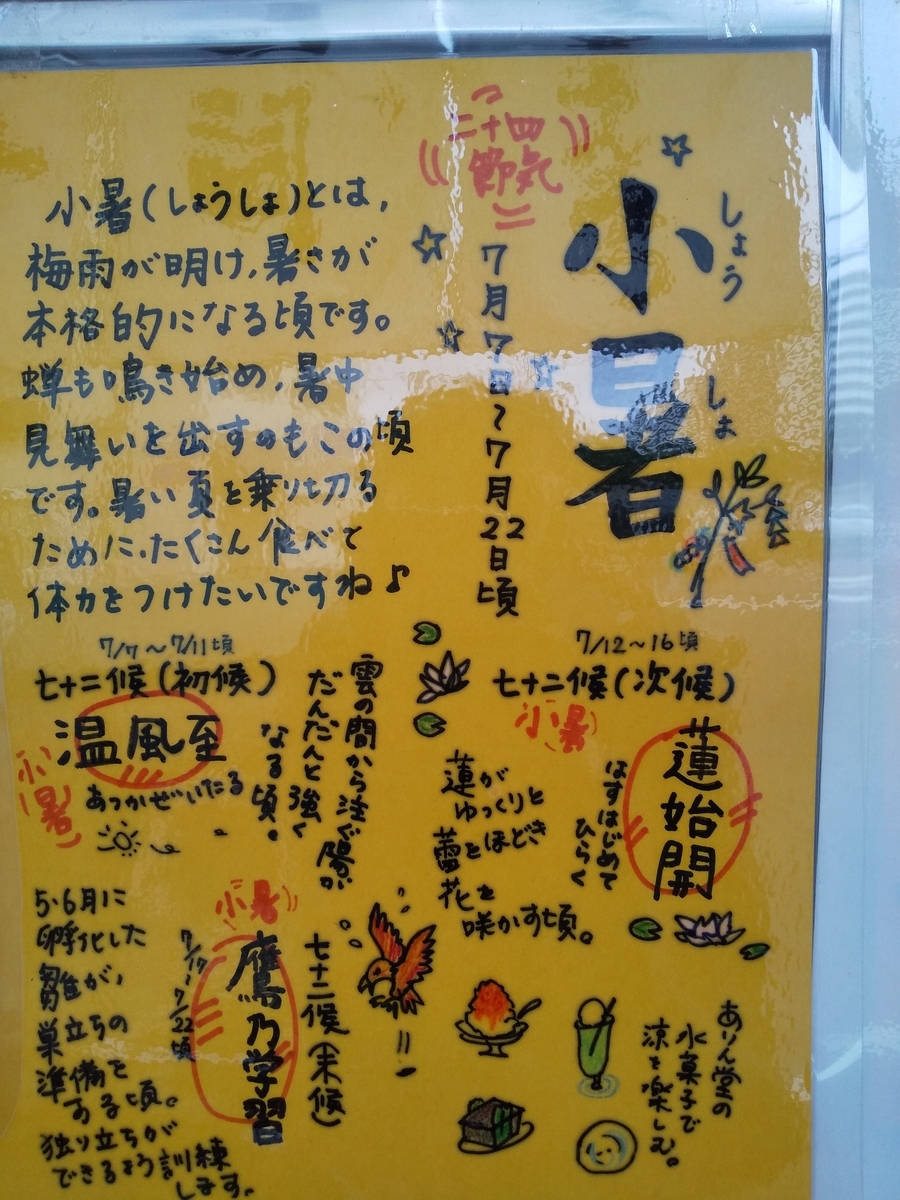 二十四
節気
小暑
しょう
しょ
7月7日〜7月22日頃
小暑(しょうしょ)とは、
梅雨が明け、暑さが
本格的になる頃です。
蝉も鳴き始め、暑中
見舞いを出すのもこの頃
です。暑い夏を乗り切る
ために、たくさん食べて
体力をつけたいですね♪
7/7〜7/11頃
七十二候(初候)
小暑
温風至
あつかぜいたる
雲の間から注ぐ陽が
だんだんと強く
なる頃。
7/12〜16頃
七十二候(次候)
小暑
蓮始開
はすはじめて
ひらく
蓮が
ゆっくりと
蕾をほどき
花を
咲かす頃。
七十二候(末候)
小暑
鷹乃学習
7/17〜7/22頃
5・6月に
孵化した
雛が、
巣立ちの
準備を
する頃。
独り立ちが
できるよう訓練
します。
ありん堂の
水菓子で
涼を楽しむ。